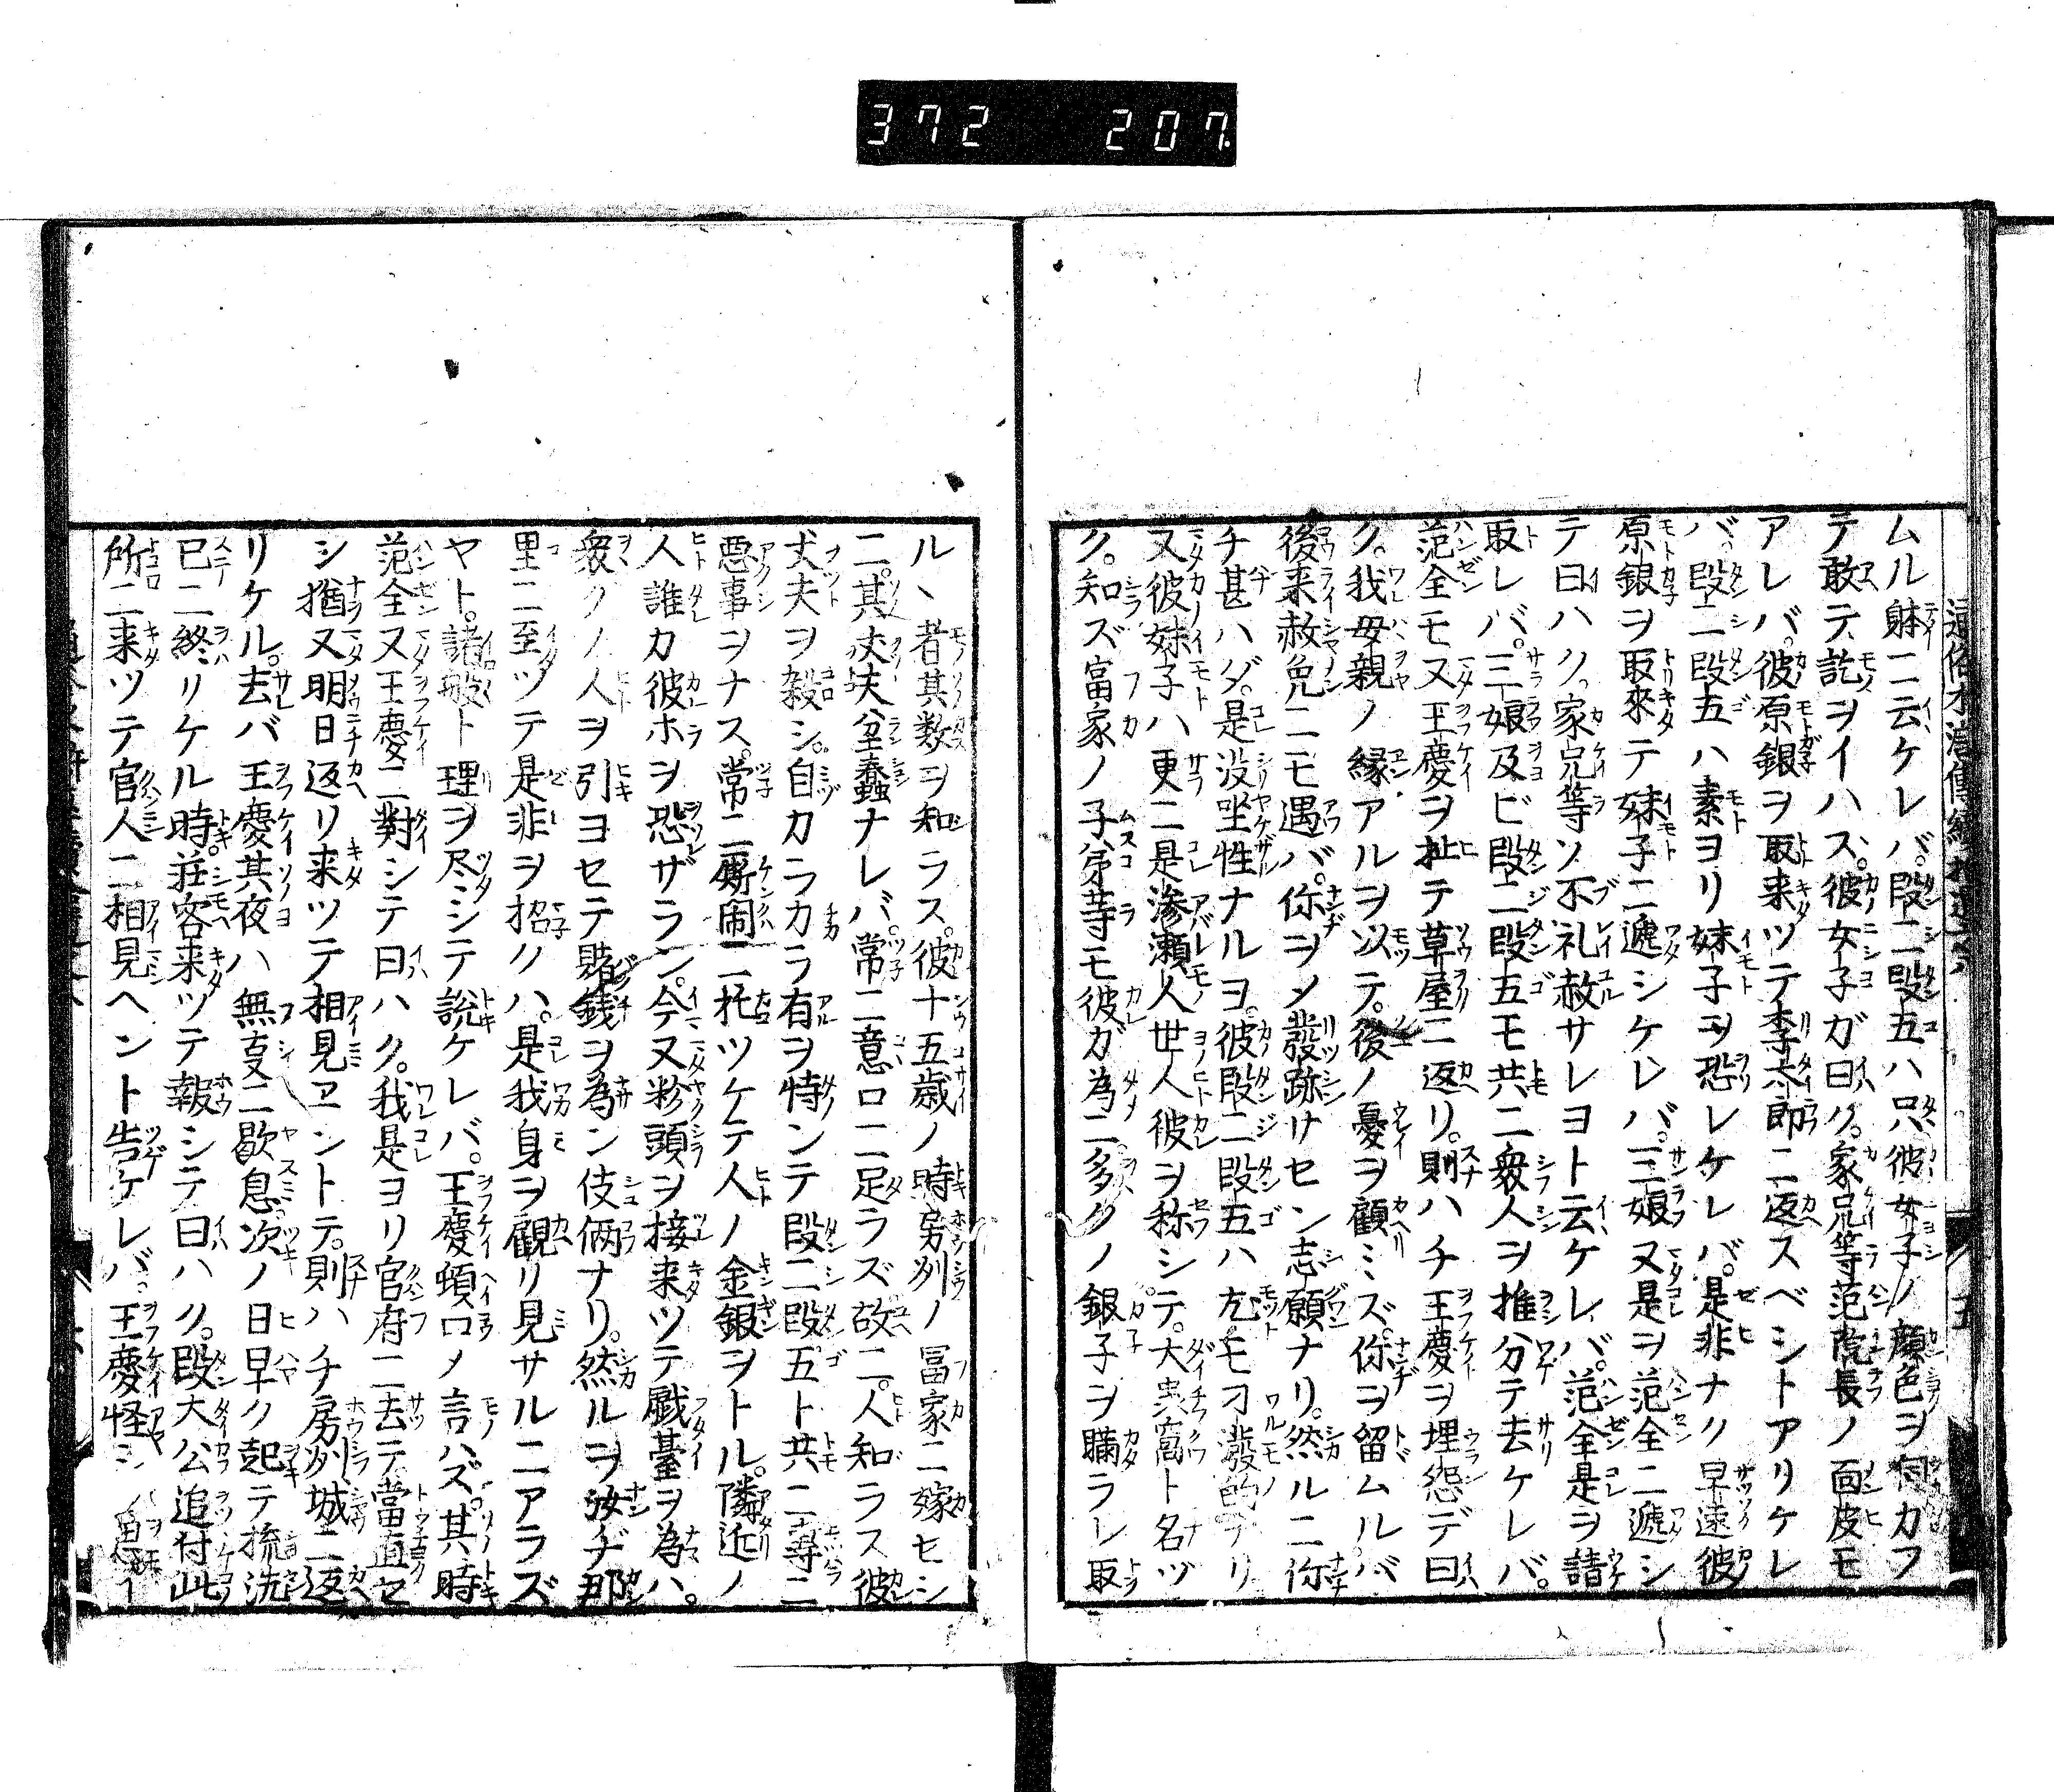 372 207.
ムル躰ニ云ケレバ。段二段五ハ只彼女子ノ顔色ヲ伺カフ
テ敢テ訖ヲイハス。彼女子ガ曰ク。家兄等范院長ノ面皮モ
アレバ。彼原銀ヲ取来ツテ李六郎ニ返スベシトアリケレ
バ。段二段五ハ素ヨリ妹子ヲ恐レケレバ。是非ナク早速彼
原銀ヲ取來テ妹子ニ遞シケレバ。三娘又是ヲ范全ニ遞シ
テ曰ハク。家兄等ソ不礼赦サレヨト云ケレバ。范全是ヲ請
取レバ。三娘及ビ段二段五モ共ニ衆人ヲ推分テ去ケレバ。
范全モ又王慶ヲ扯テ草屋ニ返リ。則ハチ王慶ヲ埋怨デ曰
ク。我母親ノ縁アルヲ以テ。後ノ憂ヲ顧ミズ。你ヲ留ムルバ
後来赦免ニモ遇バ。你ヲメ發跡サセン志願ナリ。然ルニ你
チ甚ハダ。是没坐性ナルヨ。彼段二段五ハ尤モ刁潑的ナリ
又彼妹子ハ更ニ是滲瀬人世人彼ヲ称シテ。大虫窩ト名ヅ
ク。知ズ富家ノ子弟等モ彼ガ為ニ。多クノ銀子ヲ瞞ラレ取
ルヽ者其数ヲ知ラス。彼十五歳ノ時房州ノ冨家ニ嫁ヒシ
ニ。其丈夫坌蠢ナレバ。常ニ意ロニ足ラズ故ニ。人知ラス彼
丈夫ヲ殺シ。自カラカラ有ヲ恃ンテ段二段五ト共ニ專ニ
悪事ヲナス。常ニ厮閙ニ托ツケテ人ノ金銀ヲトル。隣近ノ
人誰カ彼ホヲ恐ザラン。今又粉頭ヲ接来ツテ戯臺ヲ為ハ。
衆クノ人ヲ引ヨセテ賭銭ヲ為ン伎倆ナリ。然ルヲ汝ヂ那
里ニ至ツテ是非ヲ招クハ。是我身ヲ觀リ見サルニアラズ
ヤト。諸般ト理ヲ尽ミシテ說ケレバ。王慶頓口メ言ハズ。其時
范全又王慶ニ對シテ曰ハク。我是ヨリ官府ニ去テ當直セ
シ猶又明日返リ来ツテ相見ヱントテ。則ハチ房州城ニ返
リケル。去バ王慶其夜ハ無叓ニ歇息。次ノ日早ク起テ梳洗
已ニ終リケル時。荘客来ツテ報シテ曰ハク。段大公追付此
所ニ来ツテ官人ニ相見ヘント告ケレバ。王慶怪シ